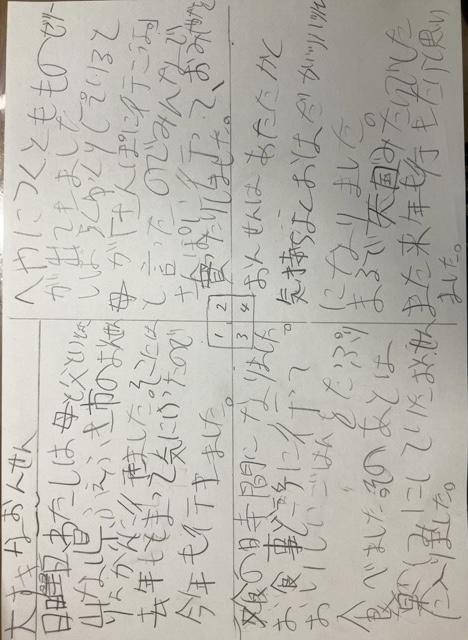 大すきなおんせん
日曜日わたしは母と父と
山なし県ふえふき市のおんせん
りょかんに行きました。そこには
去年もとまって気に入ったので
今年も行きました。
へやにつくともものゼリー
が出てきました。
しばらくゆっくりしていると
母が「さんぽに行こうよ。」
と言ったのでみんなで
さんぽに行って、おみやげを
買ったりしました。
1 2
3 4
夕食の時間になりました。
お食事どころに行って
おいしいごはんをたっぷり
食べました。そのあとは
楽しみにしていたおんせん
に入りました。
おんせんはあたたかく
気持ちよくおはだがツルツル
になりました。
まるで天国みたいでした。
また来年も行きたいと思い
ました。